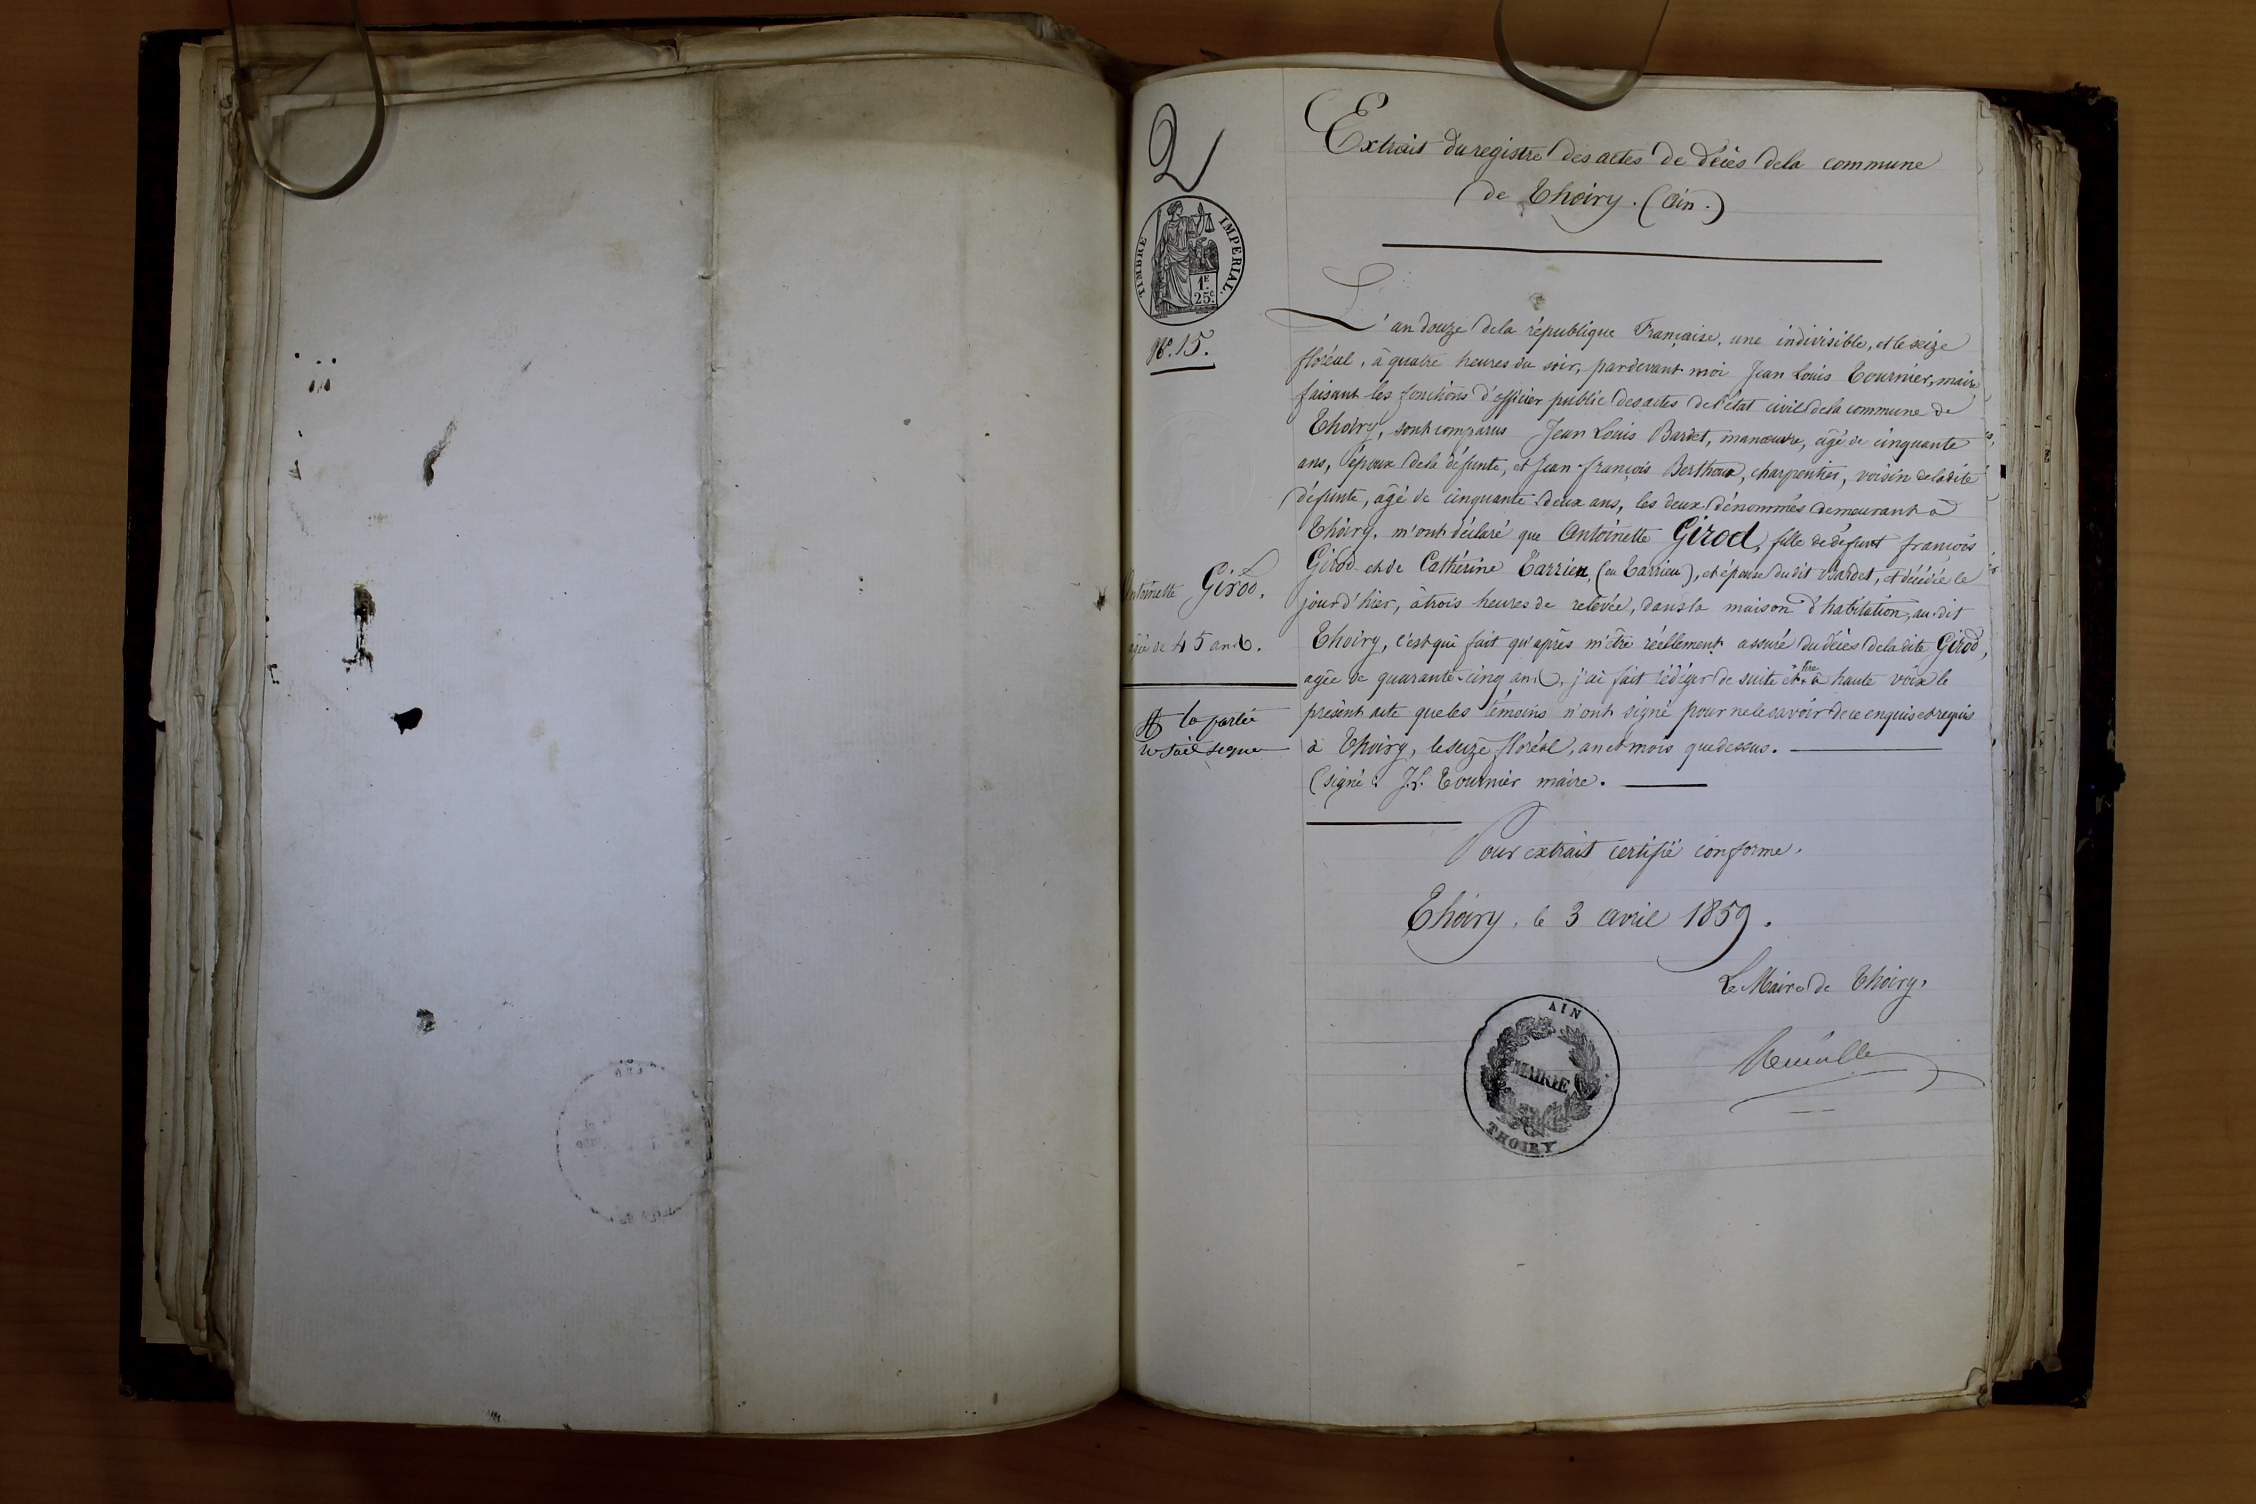 2
TIMBRE IMPERIAL.
1F.
25c.
No. 15.
Antoinette Girod.
agée de 45 ans.
la partie
Extrait du registre des actes de décès de la commune
de Thoiry. (Ain.)
L'an douze de la république Française, une indivisible, et le seize
floréal, à quatre heures du soir, pardevant moi Jean Louis Tournier, maire,
faisant les fonctions d'officier public des actes de l'état civil de la commune de
Thoiry, sont comparus Jean Louis Bardet, manœuvre, âgé de cinquante
ans, époux de la défunte, et Jean-françois Berthoux, charpentier, voisin de la dite
défunte, âgé de cinquante-deux ans, les deux dénommés demeurant à
Thoiry, m'ont déclaré que Antoinette Girod, fille de défunt françois
Girod et de Cathérine Tarrien, (ou Tarrieu), et épouse du dit Bardet, est décédée le
jour d'hier, à trois heures de relevée, dans la maison d'habitation, au-dit
Thoiry, c'est qui fait qu'après m'être réellement assuré du décès de la dite Girod,
agée de quarante-cinq ans, j'ai fait rédéger de suite et lire à haute voix le
présent acte que les témoins n'ont signé pour ne le savoir de ce enquis et requis
à Thoiry, le seize floréal, an et mois que dessus.
(signé: J. L. Tournier maire.
Pour extrait certifié conforme.
Thoiry, le 3 avril 1859.
Le Maire de Thoiry,
AIN
MAIRIE
THOIRY